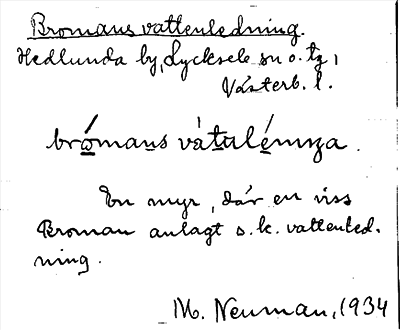 Bromans vattenledning.
Hedlunda by, Lycksele sn o. tg,
Västerb. l.
brómans vátulémṇga.
En myr, där en viss
Broman anlagt s.k. vattenled-
ning.
M. Neuman, 1934